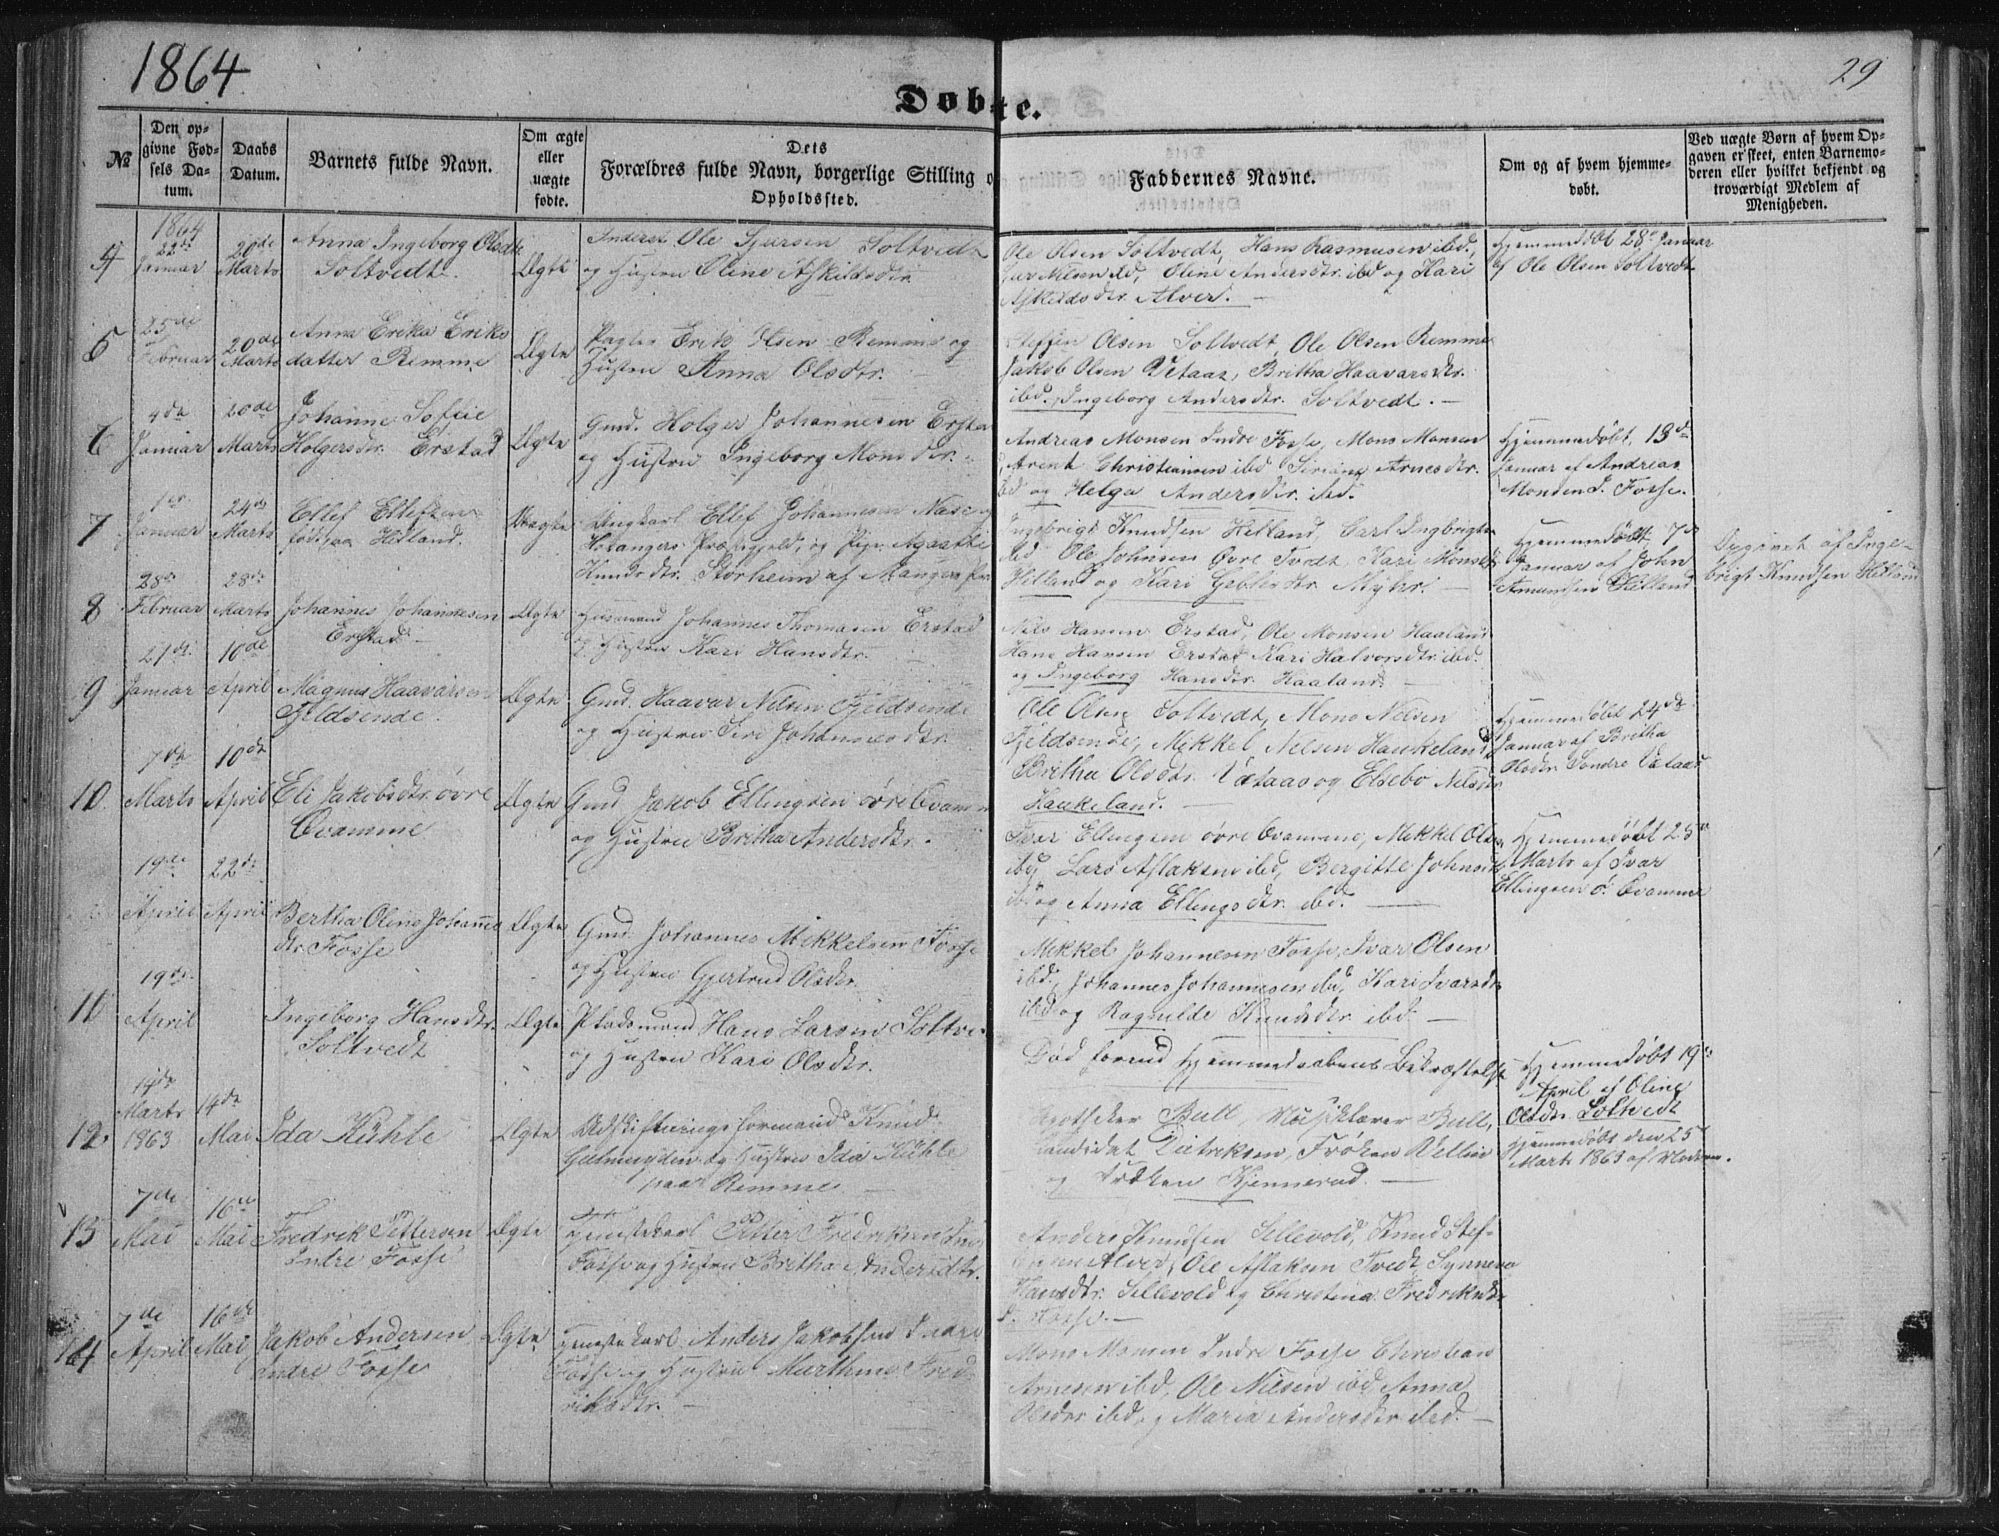 1864
29
Døbte.
№
Den opgivne Fødsels Datum.
Daabs Datum.
Barnets fulde Navn.
Om ægte eller uægte fødte.
Dets Forældres fulde Navn, borgerlige Stilling o
Opholdssted.
Faddernes Navne.
Om og af hvem hjemmedøbt.
Ved uægte Børn af hvem Opgaven er skeet, enten Barnemoderen eller hvilket bekjendt og troværdigt Medlem af Menigheden.
4
1864
22de
Januar
20de
Marts
Anna Ingeborg Olsdtr
Soltvedt.
Ægte
Inderst Ole Sjursen Soltvedt
og Hustru Oline Askildsdtr
Ole Olsen Soltvedt, Hans Rasmusen ibd,
Nilsen ibd, Oline Andersdtr. ibd og Kari
Askildsdtr Alver. —
Hjemmedøbt 28de Januar
af Ole Olsen Soltvedt
5
25de
Februar
20de
Marts
Anna Erika Eriks
datter Remme
Ægte
Erik Remme og
Hustru Anna Olsdtr.
Steffen Olsen Soltvedt, Ole Olsen Remme
Jakob Olsen Vetaas, Britha Haavarsdtr.
ibd. Ingeborg Andersdtr. Soltvedt. —
6
4de
Januar
20de
Marts
Johanne Sofie
Holgersdtr. Erstad
Ægte
Gmd. Holger Johannesen Erstad
og Hustru Ingeborg Monsdtr.
Andreas Monsen Indre Fosse, Mons Monsen
Arent Christiansen ibd Arnesdtr.
ibd og Helga Andersdtr. ibd.
Hjemmedøbt 13de
Januar af Andreas
Monsen I. Fosse.
7
1ste
Januar
24de
Marts
Ellef Ellefsen
født paa Hitland.
Uægte
Ungkarl Ellef Johannesen
Hosangers Præstegjeld, og Pige Agathe
Knudsdtr. Storheim af Mangers
Ingebrigt Knudsen Hetland, Carl Ingbrigtsen
ibd Ole Johnsen Øvre Tvedt Kari Monsdtr
Hetland og Kari Myhr. —
Hjemmedøbt 7de
Januar af John
Amundsen Hetland
Opgivet af Inge-
brigt Knudsen Hetland
8
28de
Februar
28de
Marts
Johannes Johannesen
Erstad —
Ægte
Huusmand Johannes Thomasen Erstad
og Hustru Kari Hansdtr.
Nils Hansen Erstad, Ole Monsen Haaland
Hans Hansen Erstad Kari Halvorsdtr. ibd.
og Ingeborg Hansdtr Haaland. —
9
21de
Januar
10de
April
Magnus Haavarsen
Fjeldsende.
Ægte
Gmd. Haavar Nilsen Fjeldsende
og Hustru Siri Johannesdtr.
Ole Olsen Soltvedt, Mons Nilsen
Fjeldsende, Mikkel Nilsen Haukeland
Britha Olsdtr. Vetaas og Elsebe Nilsdtr
Haukeland. —
Hjemmedøbt 24de
Januar af Britha
Olsdtr. Søndre Vetaas
10
7de
Marts
10de
April
Eli Jakobsdtr. øvre
Qvamme
Ægte
Gmd Jakob Ellingsen øvre Qvamme
og Hustru Britha Andersdtr.
Ivar Ellingsen øvre Qvamme, Mikkel Olsen
ibd, Lars Aslaksen ibd, Bergitte Johnsdtr
ibd og Anna Ellingsdtr. ibd. —
Hjemmedøbt 25de
Marts af Ivar
Ellingsen ø. Qvamme
19de
April
22de
April
Bertha Oline Johannes
dtr. Fosse
Ægte
Gmd. Johannes Mikkelsen Fosse
og Hustru Gjertrud Olsdtr.
Mikkel Johannesen Fosse, Ivar Olsen
ibd., Johannes Johannesen ibd, Kari Ivarsdtr
ibd og Ragnilde Knudsdtr ibd. —
11
19de
April
Ingeborg Hansdtr.
Soltvedt
Ægte
Pladsmand Hans Larsen Soltve
og Hustru Kari Olsdtr.
Død forend Hjemmedaabens Bekræftelse
Hjemmedøbt 19de
April af Oline
Olsdtr. Soltvedt
12
14de
Marts
1863
14de
Mai
Ida Kühle
Ægte
Udskiftningsformand Knud
Gulmeyden og Hustru Ida Kühle
paa Remme —
Apotheker Bull, Musiklærer Bull,
Candidat Dietrichsen, Frøken Vellin
og Frøken Kjennerud. —
Hjemmedøbt den 25de
Marts 1863 af Moderen.
13
7de
Mai
16de
Mai
Fredrik Pettersen
Indre Fosse
Ægte
Tjenestekarl Petter Fredriksen Ind
Fosse og Hustru Britha Andersdtr.
Anders Knudsen Sellevold, Knud Stef-
fensen Alver, Ole Aslaksen Tvedt, Synneva
Hansdtr. Sellevold og Christina Fredriksdtr
I. Fosse. —
14
7de
April
16de
Mai
Jakob Andersen
Indre Fosse
Ægte
Tjenestekarl Anders Jakobsen Indre
Fosse og Hustru Marthine Fred-
riksdtr. —
Mons Monsen Indre Fosse Christian
Arnesen ibd, Ole Nilsen ibd Anna
Olsdtr ibd, og Maria Andersdtr ibd. —